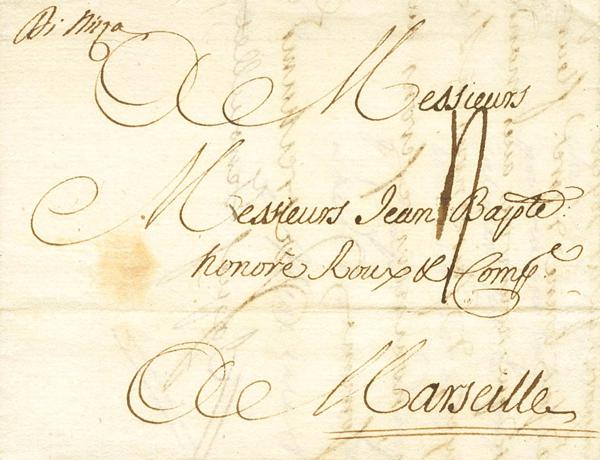 Di Nizza
A Messieurs
Messieurs Jean Bapte:
honoré Roux & Compe
A Marseille